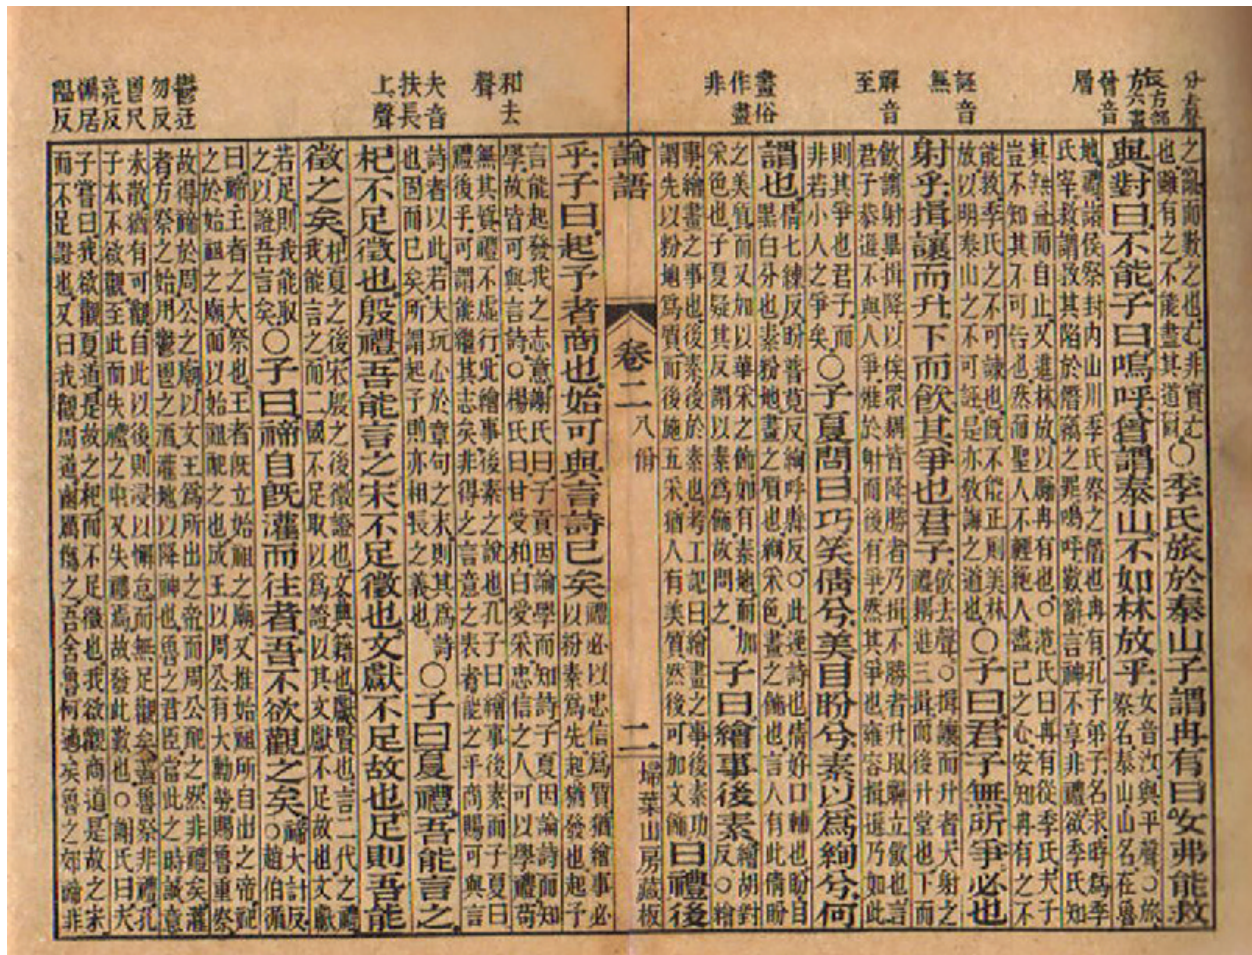 分去聲
旅方部方六畫
曾音層
誣音無
觶音至
畫俗作畫非
之論而數之也
也雖有之不能盡其道爾
○季氏旅於泰山子謂冉有曰女弗能救
與對曰不能子曰嗚呼曾謂泰山不如林放乎
女音汝與平聲○旅
祭名泰山山名在魯
地禮諸侯祭封內山川季氏祭之僭也冉有孔子弟子名求時爲季
氏宰救謂救其陷於僭竊之罪嗚呼歎辭言神不享非禮欲季氏知
其無益而自止又進林放以厲冉有也○范氏曰冉有從季氏夫子
豈不知其不可告也然而聖人不輕絕人盡己之心安知冉有之不
能救季氏之不可諫也既不能正則美林
放以明泰山之不可誣是亦敎誨之道也
○子曰君子無所爭必也
射乎揖讓而升下而飮其爭也君子
飮去聲○揖讓而升者大射之
禮耦進三揖而後升堂也下而
飮謂射畢揖降以俟眾耦皆降勝者乃揖不勝者升取觶立飮也言
君子恭遜不與人爭惟於射而後有爭然其爭也雍容揖遜乃如此
則其爭也君子而
非若小人之爭矣
○子夏問曰巧笑倩兮美目盼兮素以爲絢兮何
謂也
倩七練反盼普莧反絢呼縣反○此逸詩也倩好口輔也盼目
黑白分也素粉地畫之質也絢采色畫之飾也言人有此倩盼
之美質而又加以華采之飾如有素地而加
采色也子夏疑其反謂以素爲飾故問之
子曰繪事後素
繪胡對
反○繪
事繪畫之事也後素後於素也考工記曰繪畫之事後素功
謂先以粉地爲質而後施五采猶人有美質然後可加文飾
曰禮後
論語
卷二
八佾
二
埽葉山房藏板
和去聲
夫音扶長上聲
鬱迂勿反
鬯尺亮反
灌居
乎子曰起予者商也始可與言詩已矣
禮必以忠信爲質猶繪事必
以粉素爲先起猶發也起予
言能起發我之志意謝氏曰子貢因論學而知詩子夏因論詩而知
學故皆可與言詩○楊氏曰甘受和白受采忠信之人可以學禮苟
無其質禮不虛行此繪事後素之說也孔子曰繪事後素而子夏曰
禮後乎可謂能繼其志矣非得之言意之表者能之乎商賜可與言
詩者以此若夫玩心於章句之末則其爲詩
也固而已矣所謂起予則亦相長之義也
○子曰夏禮吾能言之
杞不足徵也殷禮吾能言之宋不足徵也文獻不足故也足則吾能
徵之矣
杞夏之後宋殷之後徵證也文典籍也獻賢也言二代之禮
我能言之而二國不足取以爲證以其文獻不足故也文獻
若足則我能取
之以證吾言矣
○子曰禘自既灌而往者吾不欲觀之矣
禘大計反
○趙伯循
曰禘王者之大祭也王者既立始祖之廟又推始祖所自出之帝祀
之於始祖之廟而以始祖配之也成王以周公有大勳勞賜魯重祭
故得禘於周公之廟以文王爲所出之帝而周公配之然非禮矣灌
者方祭之始用鬱鬯之酒灌地以降神也魯之君臣當此之時誠意
未散猶有可觀自此以後則浸以懈怠而無足觀矣蓋魯祭非禮孔
子本不欲觀至此而失禮之中又失禮焉故發此歎也○謝氏曰夫
子嘗曰我欲觀夏道是故之杞而不足徵也我欲觀商道是故之宋
而不足證也又曰我觀周道幽厲傷之吾舍魯何適矣魯之郊禘非